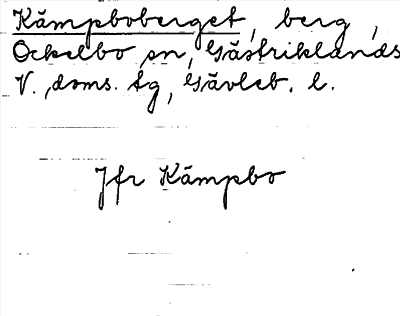 Kämpboberget, berg,
Ockelbo sn, Gästriklands
V. doms. tg, Gävleb. l.
Jfr Kämpbo